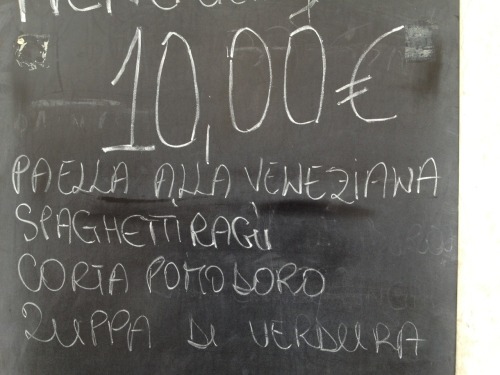 10,00 €
PAELLA ALLA VENEZIANA
SPAGHETTI RAGÙ
CORTA POMODORO
ZUPPA DI VERDURA